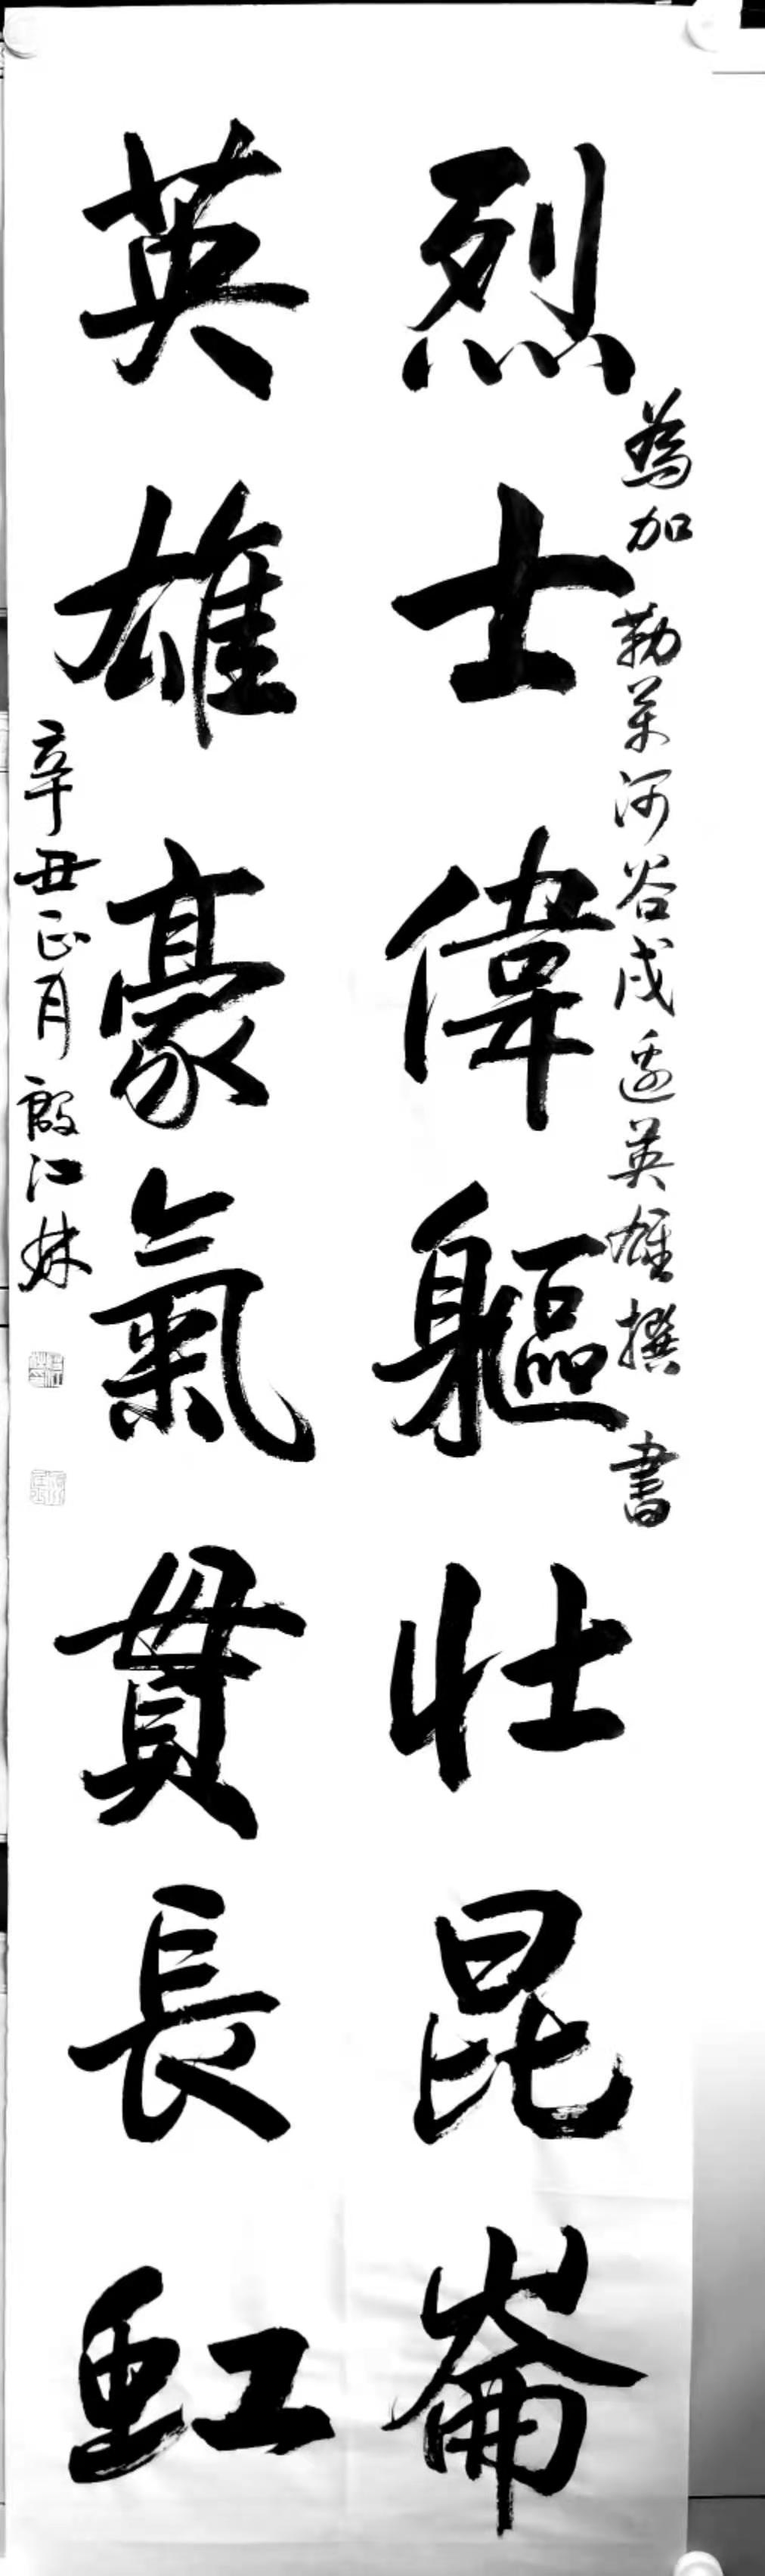 烈士偉軀壯昆崙
為加勒萬河谷戍邊英雄撰書
英雄豪氣貫長虹
辛丑正月殷江林